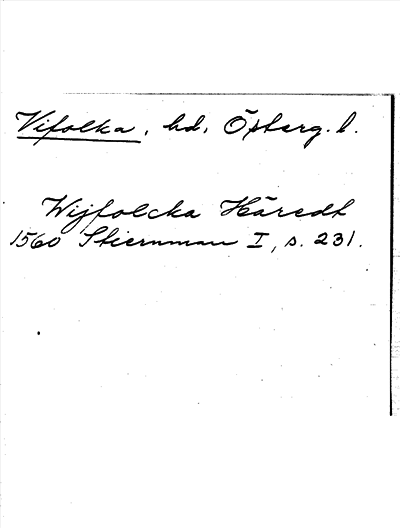 Vifolka, hd, Österg. l.
Wijfolcka Häredt
1560 Stiernman I, s. 231.